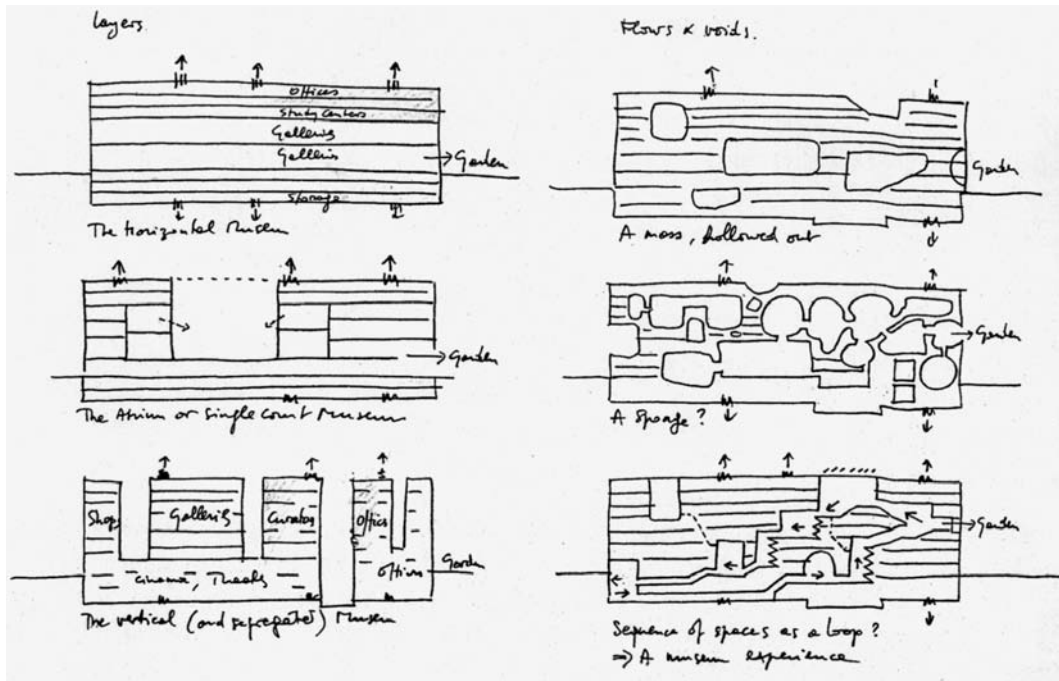 Layers
offices
Study centers
Galleries
Galleries
→ Garden
Storage
The Horizontal Museum
→ Garden
The Atrium or single court Museum
Shop
Galleries
Curators
Offices
Cinema,
offices
Garden
The vertical (and segregated) Museum
Flows & voids.
Garden
A mass, hollowed out
→ Garden
A sponge?
→ Garden
Sequence of spaces as a loop?
⇒ A museum experience